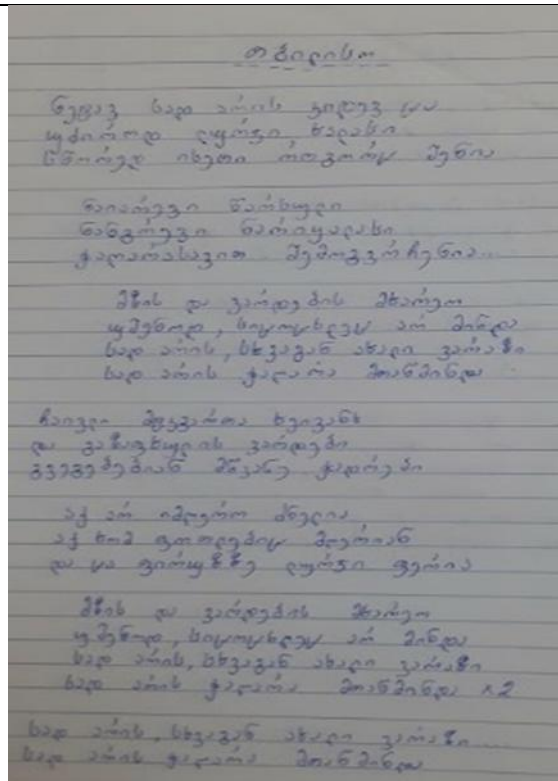 თბილისო
ნეტავ სად არის კიდევ ცა
უძირო და ლურჯი ხალასი
სწორედ ისეთი როგორც შენია
ნაიარევი წარსული
ნანგრევი ნარიყალასი
ჭაღარასავით შემოგვრჩენია...
მზის და ვარდების მხარეო
უშენოდ, სიცოცხლეც არ მინდა
სად არის, სხვაგან ახალი ვარაზი
სად არის ჭაღარა მთაწმინდა
ჩაივლი მტკვართა ხეივანს
და გაზაფხულის ვარდები
გვეგებებიან მწვანე ჭადრები
აქ არ იმღერო ძნელია
აქ ხომ ფოთლებიც მღერიან
და ცა ფირუზზე ლურჯი ფერია
მზის და ვარდების მხარეო
უშენოდ, სიცოცხლეც არ მინდა
სად არის, სხვაგან ახალი ვარაზი
სად არის ჭაღარა მთაწმინდა x2
სად არის, სხვაგან ახალი ვარაზი...
სად არის ჭაღარა მთაწმინდა